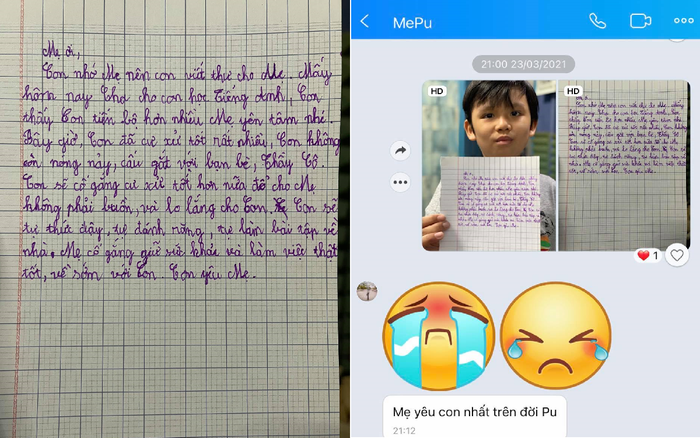 Mẹ ơi,
Con nhớ Mẹ nên con viết thư cho Mẹ. Mấy
hôm nay Cha cho con học Tiếng Anh, Con
thấy Con tiến bộ hơn nhiều Mẹ yên tâm nhé.
Bây giờ, Con đã cư xử tốt rất nhiều, Con không
còn nóng nảy, cáu gắt với bạn bè, Thầy Cô.
Con sẽ cố gắng cư xử tốt hơn nữa để cho Mẹ
không phải buồn, và lo lắng cho Con. Con sẽ
tự thức dậy, tự đánh răng, tự làm bài tập về
nhà. Mẹ cố gắng giữ sức khỏe và làm việc thật
tốt, về sớm với Con. Con yêu Mẹ.
MePu
21:00 23/03/2021
HD
HD
1
Mẹ yêu con nhất trên đời Pu
21:12